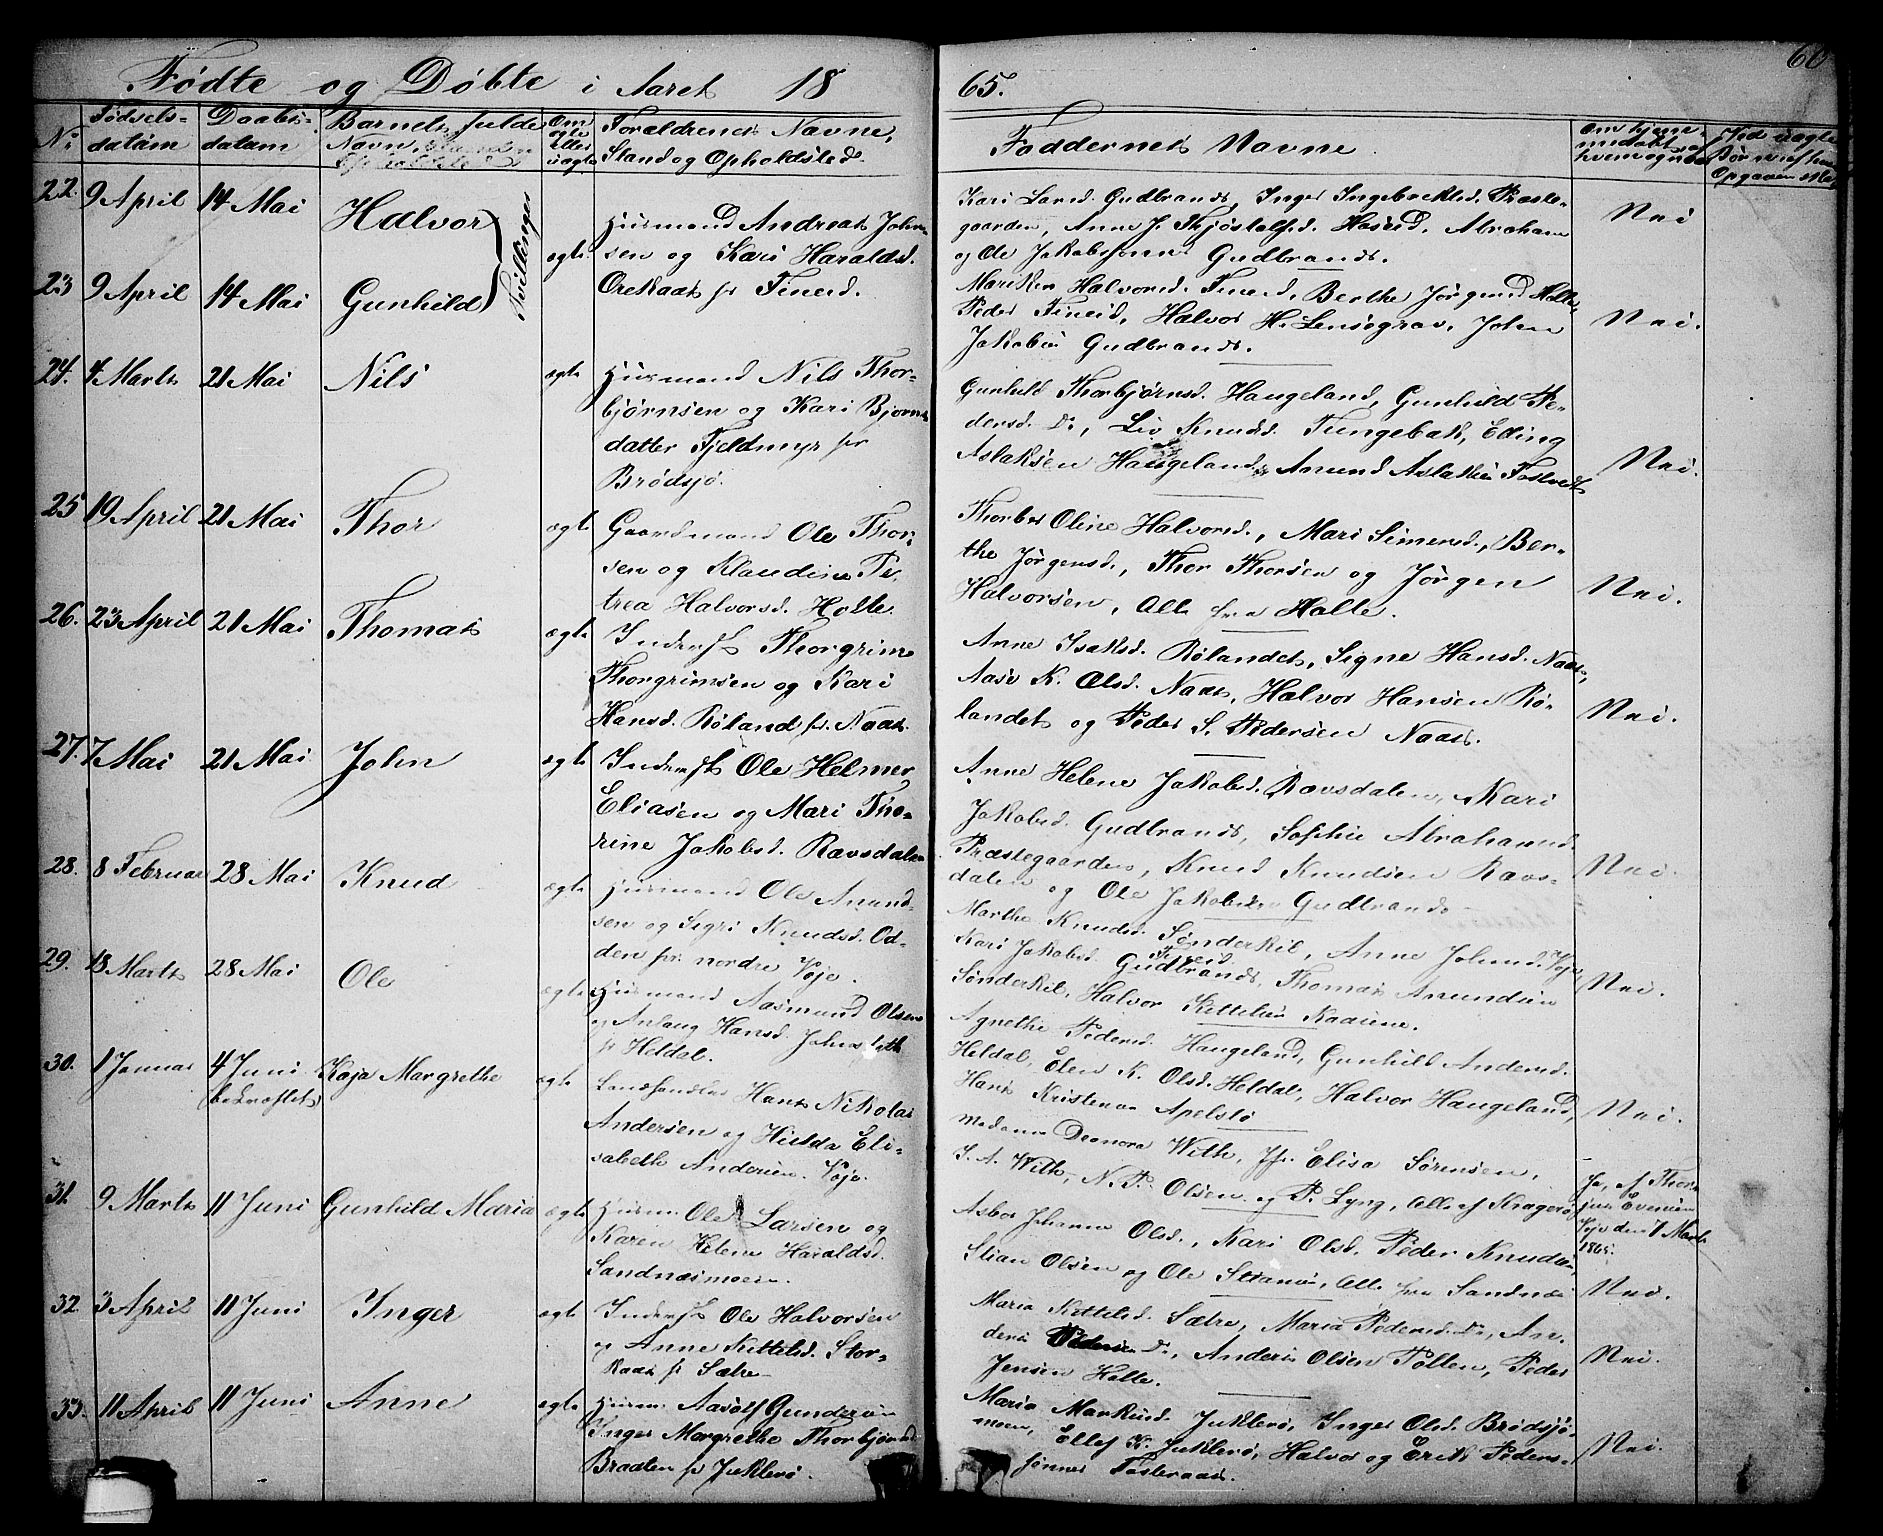 Fødte og Døbte i Aaret 18
65.
60
No
Fødsels-
datum
Daabs-
datum
Barnets fulde
Navn,
Om
ægte
eller
uægte
Forældrenes Navne,
Stand og Opholdsted
Faddernes Navne
om hjemme-
medøbt, af
hvem og naar
Ved uægte
Børn
Opgaven
22. 9 April 14 Mai Halvor
Tvillinger
ægte
Husmand Andreas John-
sen og Kari Haraldsd.
Orekaas fr Fineid.
Kari Larsd. Gudbrands, Inger Ingeborgsd. Præste-
gaarden, Anne J. Thjøstolfsd. Haseid, Abraham
og Ole Jakobssønner Gudbrands.
Nei
23 9 April 14 Mai Gunhild
Mariken Halvorsd. Fineid, Berthe Jørgensd Holte,
Peder Fineid, Halvor H. Lensegrav, John
Jakobsen Gudbrands.
Nei.
24. 4 Marts 21 Mai Nils ægte
Husmand Nils Thor-
bjørnsen og Kari Bjorns
datter Fjeldmyr fr
Brødsjø.
Gunhild Thorbjørnsd. Haugeland, Gunhild Pe-
dersd. Do, Liv Knudsd. Tungebak, Eding
Aslaksen Haugeland, Anund Aslaksen Fostvedt
Nei.
25 19 April 21 Mai Thor ægte
Gaardmand Ole Thor-
sen og Klaudine Pe-
trea Halvorsd. Holte.
Thorber Oline Halvorsd., Mari Simensd., Ber-
the Jørgensd., Thor Thorsen og Jørgen
Halvorsen, Alle fra Holte.
Nei.
26. 23 April 21 Mai Thomas ægte
Inderst Thorgrim
Thorgrimsen og Kari
Hansd. Røland fr. Naas.
Anne Isaksd. Rølandet, Signe Hansd. Naas,
Aase K. Olsd. Naas, Halvor Hansen Rø-
landet og Peder S. Pedersen Naas.
Nei.
27. 7 Mai 21 Mai John ægte
Inderst Ole Helmer
Eliasen og Mari Tho-
rine Jakobsd. Ravsdalen
Anne Helene Jakobsd. Ravsdalen, Kari
Jakobsd. Gudbrands, Sophie Abrahamsd.
Præstegaarden, Knud Knudsen Ravs-
dalen og Ole Jakobsen Gudbrands
Nei.
28. 8 Februar 28 Mai Knud ægte
Husmand Ole Anund-
sen og Sigri Knudsd. Od-
den fr. nordre Vøje.
Marthe Knudsd. Sønderkil, Anne Johnsd. Vøje,
Kari Jakobsd. Gudbrands, Thomas Anundsen
Fineid
Sønderkil, Halvor Kettelsen Kaasene.
Nei.
29. 18 Marts 28 Mai Ole ægte
Husmand Aasmund Olsen
og Anlaug Hansd. Johnsløth
fr Heldal.
Agnethe Pedersd. Haugeland, Gunhild Andersd.
Heldal, Elen K. Olsd. Heldal, Halvor Haugeland,
Hans Kristensen Apelslø
Nei.
30. 1 Januar 4 Juni Kaja Margrethe ægte
(bekræftet)
Landhandler Hans Nikolai
Andersen og Hilda Eli-
sabeth Andersen. Vøje.
Madame Deonora With, Jfr. Elisa Sørensen,
S. A. With, N. P. Olsen og P. Lyng, Alle af Kragerø
Ja, af Thor
Evensen
Vøje den 7 Marts
1865.
31. 9 Marts 11 Juni Gunhild Maria ægte
Husm. Ole Larsen og
Karen Helene Haraldsd.
Sandnæsmoen.
Asbor Johanne Olsd., Kari Olsd. Peder Knudsen,
Stian Olsen og Ole Stiansen, Alle fra Sandnæs
Nei.
32. 3 April 11 Juni Inger ægte
Inderst Ole Halvorsen
og Anne Kettelsd. Stor-
kaas fr Sætre
Maria Kettelsd. Sætre, Maria Pedersd. Do, An-
ders Pedersen Do, Anders Olsen Pollen, Peder
Jensen Holte.
Nei.
33. 11 April 11 Juni Anne ægte
Husm. Aasolf Gundersen
Inger Margrethe Thorbjørnsd.
Braaten fr Juklerø.
Maria Markusd. Juklerø, Inger Olsd. Brødsjø-
moen, Ellef K. Juklerø, Halvor og Erik Peders-
sønner Fosteraas.
Nei.